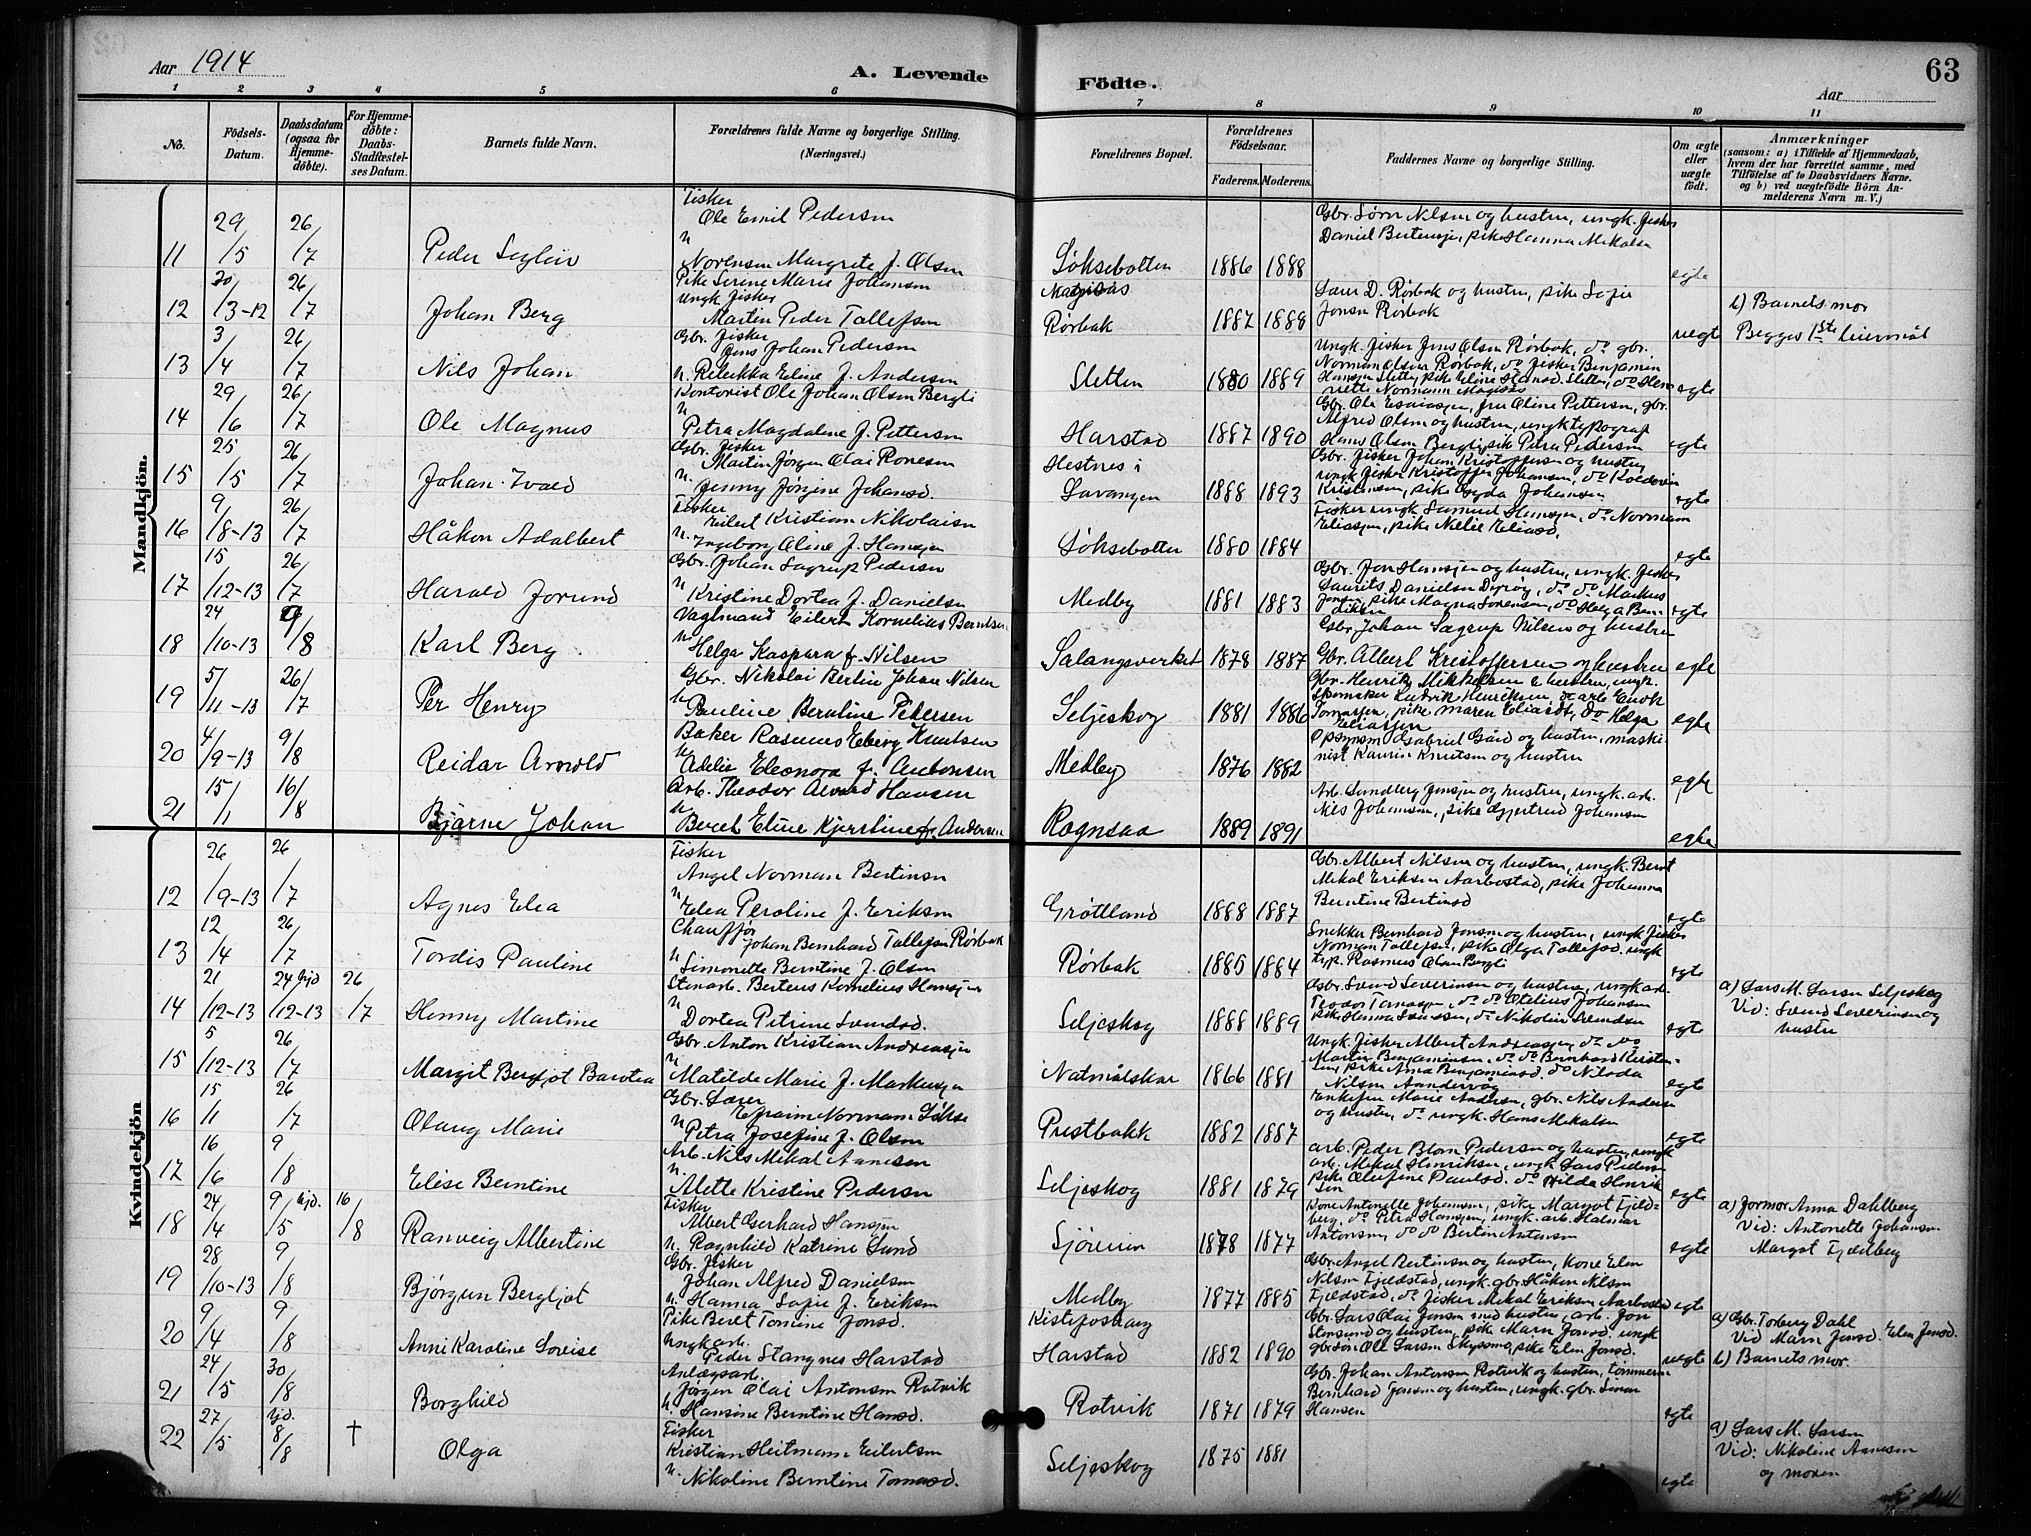 Aar 1914
A. Levende Födte.
63
Aar
1 2 3 4 5 6 7 8 9 10 11
No.
Födsels-Datum.
Daabsdatum (ogsaa for Hjemme-döbte).
For Hjemme-döbte: Daabs-Stadfæstel-ses Datum.
Barnets fulde Navn.
Forældrenes fulde Navne og borgerlige Stilling.
(Næringsvei.)
Forældrenes Bopæl.
Forældrenes Födselsaar.
Faderens. Moderens.
Faddernes Navne og borgerlige Stilling.
Om ægte eller uægte födt.
Anmærkninger
(saasom: a) i Tilfælde af Hjemmedaab,
hvem der har forrettet samme, med
Tilföielse af to Daabsvidners Navne.
og b) ved uægtefödte Börn An-
melderens Navn m. V.)
Mandkjön.
11 29/5 26/7 Peder
Fisker
Ole Emil Pedersen
Margrete f. Olsen
Søksebotten 1886 1888
Gbr. Sørn Nilsen og hustru, ungk. fisker
Daniel Bertensen, pike Hanna Mekalsen
egte
12 30/3-12 26/7 Johan Berg
Pike Serine Marie Johansen
Ungk. fisker
Martin Peder Tallefsen
Rørbak 1887 1888
Lars D. Rørbak og hustru, pike Sofie
Jonsen Rørbak
uegte
b) Barnets mor
Begges 1ste leiermål
13 3/4 26/7 Nils Johan
Gbr. fisker
Jens Johan Pedersen
h. Rebekka Eline f. Andersen
Sletten 1880 1889
Ungk. fisker Jens Olsen Rørbak, do gbr.
Norman Olsen Rørbak, do fisker Benjamin
egte
14 29/6 26/7 Ole Magnus
Kontorist Ole Johan Olsen Bergli
h
Petra Magdalene f. Pettersen
Harstad 1887 1890
Gbr. Ole Esaiassen, fru Oline Pettersen, gbr.
Alfred Olsen og hustru, ungk. typograf
Hans Olsen Bergli, pike Petra Pedersen
egte
15 25/5 26/7 Johan
Gbr. fisker
Martin Jørgen Olai Ronesen
h.
Jenny Jørgine Johansd.
Hestnes i
Lavangen 1888 1893
Gbr. fisker Johan Kristoffersen og hustru
ungk. fisker Kristoffer Johansen, do
Kristensen, pike Gyda Johansen
egte
16 9/8-13 26/7 Håkon Adalbert
Fisker
Eilert Kristian Nikolaisen
h. Ingeborg Oline f. Hansen
Søksebotten 1880 1884
Fisker ungk. Samuel Hansen, do Normann
Eliassen, pike Nelie Eliasd.
egte
17 15/12-13 26/7 Harald Jorund
Gbr. Johan Sagrup Pedersen
h
Kristine Dortea f. Danielsen
Medby 1881 1883
Gbr. Jon Hansen og hustru, ungk. fisker
Laurits Danielsen Dyrøy, do do Markus
Jensen, pike Magna Sørensen, do Helga Ben-
egte
18 24/10-13 9/8 Karl Berg
Vagtmand Eilert Kornelius Berntsen
h
Helga Kaspara f. Nilsen
Salangsverket 1878 1887
Gbr. Johan Sagrup Nilsen og hustru
Gbr. Albert Kristoffersen og hustru
egte
19 5/11-13 26/7 Per Henry
Gbr. Nikolai Bertin Johan Nilsen
h
Pauline Berntine Pedersen
Seljeskog 1881 1886
Gbr. Henrik Mikkelsen & hustru, ungk.
Skomaker Ludvik Henriksen, do arb. Enok
Tomassen, pike Maren Eliasdt, do Helga
Eliassen
egte
20 4/9-13 9/8 Reidar Arnold
Baker Rasmus Eberg Knutsen
h
Adelie Eleonora f. Antonsen
Medby 1876 1882
Opsynsm Gabriel Gård og hustru, maski-
nist Knutsen og hustru
egte
21 15/1 16/8 Bjarne Johan
Arb. Theodor Hansen
h
Beret Eline Kjerstine f. Andersen
Rognsaa 1889 1891
Arb. Lundberg Jensen og hustru, ungk. arb.
Nils Johansen, pike Gjertrud Johansen
egte
Kvindekjön
12 26/9-13 26/7 Agnes Elea
Fisker
Angel Norman Bertinsen
h
Elea Peroline f. Eriksen
Grøtland 1888 1887
Gbr. Albert Nilsen og hustru, ungk. Bernt
Mekal Eriksen Aarbostad, pike Johanna
Berntine Bertinsd
egte
13 12/4 26/7 Tordis Pauline
Chauffør
Johan Bernhard Tallefsen Rørbak
h
Simonette Berntine f. Olsen
Rørbak 1885 1884
Snekker Bernhard Jensen og hustru, ungk. fisker
Norman Tallefsen, pike Olga Tallefsd. ungk
typ. Rasmus Olsen Bergli
egte
14 21/12-13 24 hjd/12-13 26/7 Henny Martine
Stenarb. Berteus Kornelius Hansen
h
Dortea Petrine Svendsd.
Seljeskog 1888 1889
Gbr. Svend Severinsen og hustru, ungk. arb.
Teodor Tomassen, do do Otelius Johansen
pike Hanna Svendsen, do Nikolin Svendsen
egte
a) Lars M. Larsen Seljeskog
Vid: Svend Severinsen og
hustru
15 5/12-13 26/7 Margit Bergljot Barotea
Gbr. Anton Kristian Andreassen
h
Matilde Marie f. Markussen
Natmålskar 1866 1881
Ungk. fisker Albert Andreassen, do do
Martin Benjaminsen, do do Bernhard Kristen-
sen, pike Anna Benjaminsd. do Nilsda
Nilsen Aandervåg
egte
16 15/11 26/7 Olaug Marie
Gbr. Lærer
Efraim Normann Løkse
h
Petra Josefine f. Olsen
Prestbakk 1882 1887
Enkefru Marie Andersen, gbr. Nils Andersen
og hustru, do ungk. Hans Mekalsen
egte
17 16/6 9/8 Elise Berntine
Arb. Nils Mekal Aanesen
h.
Alette Kristine Pedersen
Seljeskog 1881 1879
arb. Peder Blom Pedersen og hustru, ungk
arb. Mekal Henriksen, ungk. Lars Pedersen
pike Olufine Paulsd. do Hilda Henrik
sen
egte
18 24/4 9 hjd./5 16/8 Ranveig Albertine
Fisker
Albert Gerhard Hansen
h. Ragnhild Katrine Lund
Sjøveien 1878 1877
Kone Antonette Johansen, pike Margot Fjeld-
berg, do Petra Hansen, ungk. arb. Halmar
Antonsen, do do Bertin Antonsen
egte
a) Jormor Anna Dahlberg
Vid: Antonette Johansen
Margot Fjeldberg
19 28/10-13 9/8 Bjørgun Bergljot
Gbr. fisker
Johan Alfred Danielsen
h. Hanna Sofie f. Eriksen
Medby 1877 1885
Gbr. Angel Bertinsen og hustru, kone Elen
Nilsen Fjeldstad, ungk. gbr. Håkon Nilsen
Fjeldstad, do fisker Mekal Eriksen Aarbostad
egte
20 9/4 9/8 Anne Karoline Lovise
Pike Beret Tomine Jonsd.
Ungk. arb.
Peder Stangnes Harstad
Kistefoshaug
Harstad 1882 1890
Gbr. Lars Olai Jensen med hustru, arb. Jon
Stensund og hustru, pike Marn Jonsd. ungk
gbr.søn Ole Larsen Skyssmo, pike Elen Jonsd.
uegte
a) Gbr. Toberg Dahl
Vid Marn Jonsd. Elen Jonsd.
b) Barnets mor.
21 24/5 30/8 Borghild
Anlægsarb.
Jørgen Olai Antonsen Rotvik
h. Hansine Berntine Hansd.
Rotvik 1871 1879
Gbr. Johan Antonsen Rotvik og hustru, tømmerm.
Bernhard Jensen og hustru, ungk. gbr. Simon
Hansen
egte
22 27/5 hjd. 8/8 † Olga
Fisker
Kristian Heitmann Eilertsen
h. Nikoline Berntine Tomasd.
Seljeskog 1875 1881
egte
a) Lars M. Larsen
Vid: Nikoline Aanesen
og moren